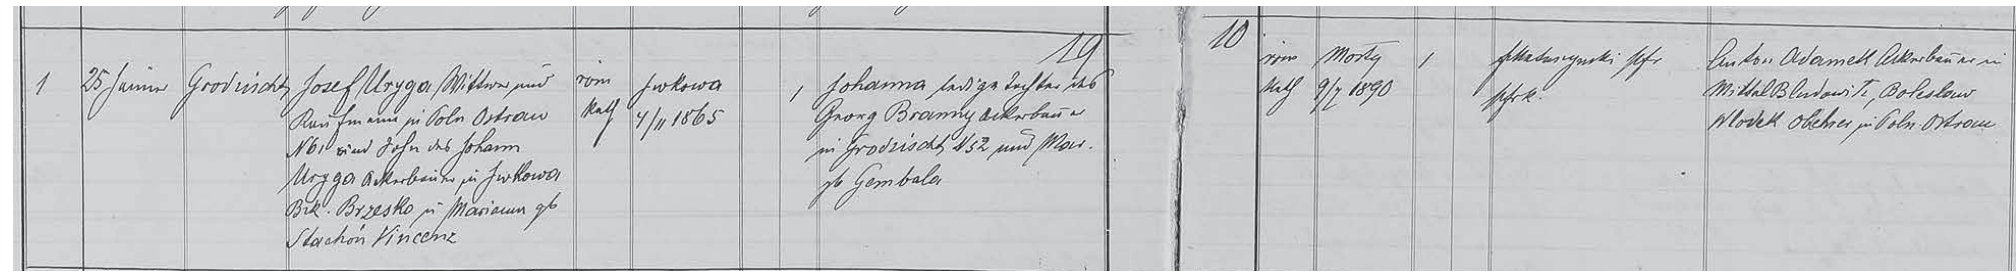 19
10
1
25 Jänner
Grodzischtz
Josef Uryga, Wittwer und
Kaufmann in Poln Ostrau
N61 und Sohn des Johann
Uryga Ackerbauer in Iwkowa
Bzk. Brzesko u Marianna gb
Stachoń Vincenz
röm
Kath
Iwkowa
4/11 1865
1
Johanna ledige Tochter des
Georg Branny Ackerbauer
in Grodzischtz N52 und Mar.
gb Gembala
röm
Kath
Mosty
9/7 1890
1
Pfr
Anton Adametz Ackerbauer in
Mittel Bludowitz, Boleslaw
Wlodek in Poln. Ostrau